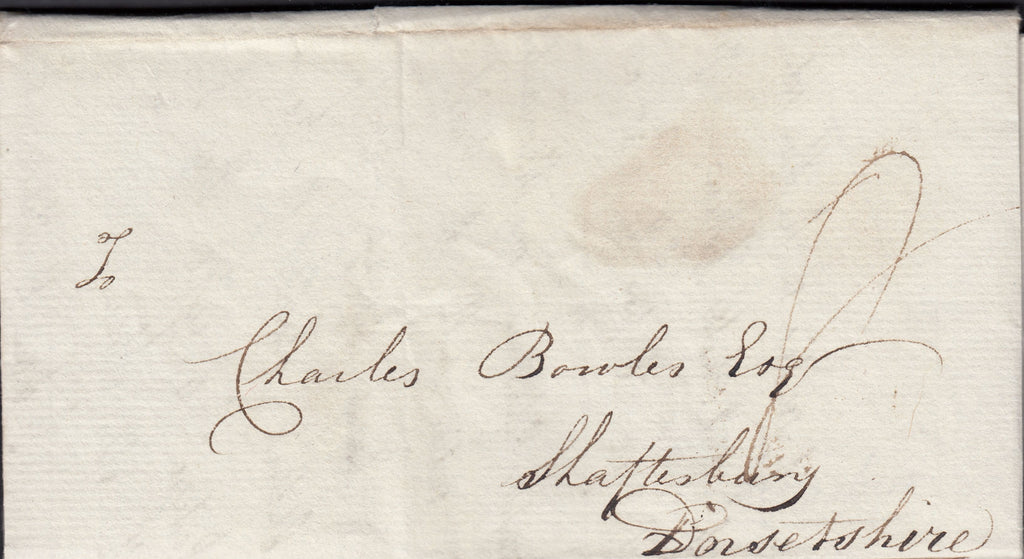 To
Charles Bowles Esq
Shaftesbury
Dorsetshire